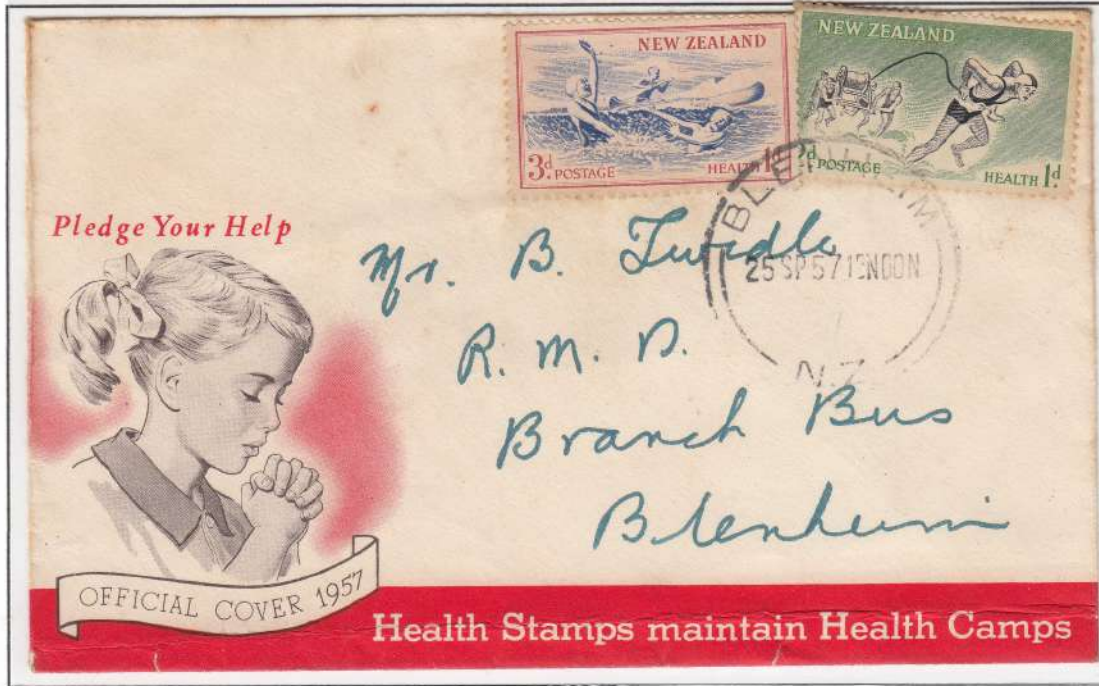 NEW ZEALAND
3d POSTAGE HEALTH 1d
NEW ZEALAND
2d POSTAGE HEALTH 1d
BLENHEIM
25 SP 57 12 NOON
N.Z.
Pledge Your Help
Mr. B. Twidle
R. M. D.
Branch Bus
Blenheim
OFFICIAL COVER 1957
Health Stamps maintain Health Camps